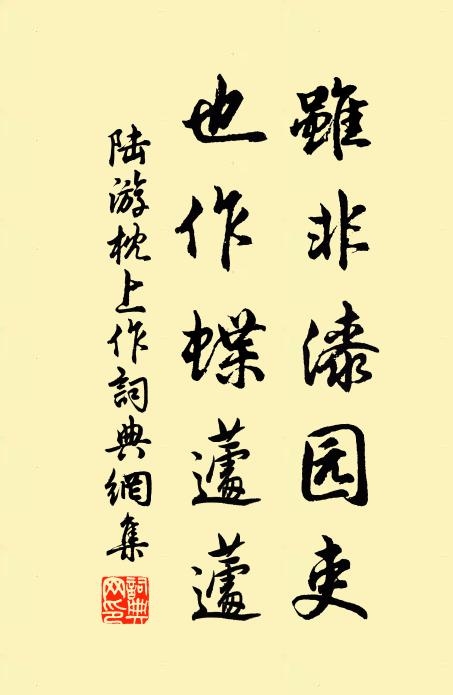 雖非漆园吏
也作蝶蘧蘧
陆游枕上作詞典網集
詞典
网印